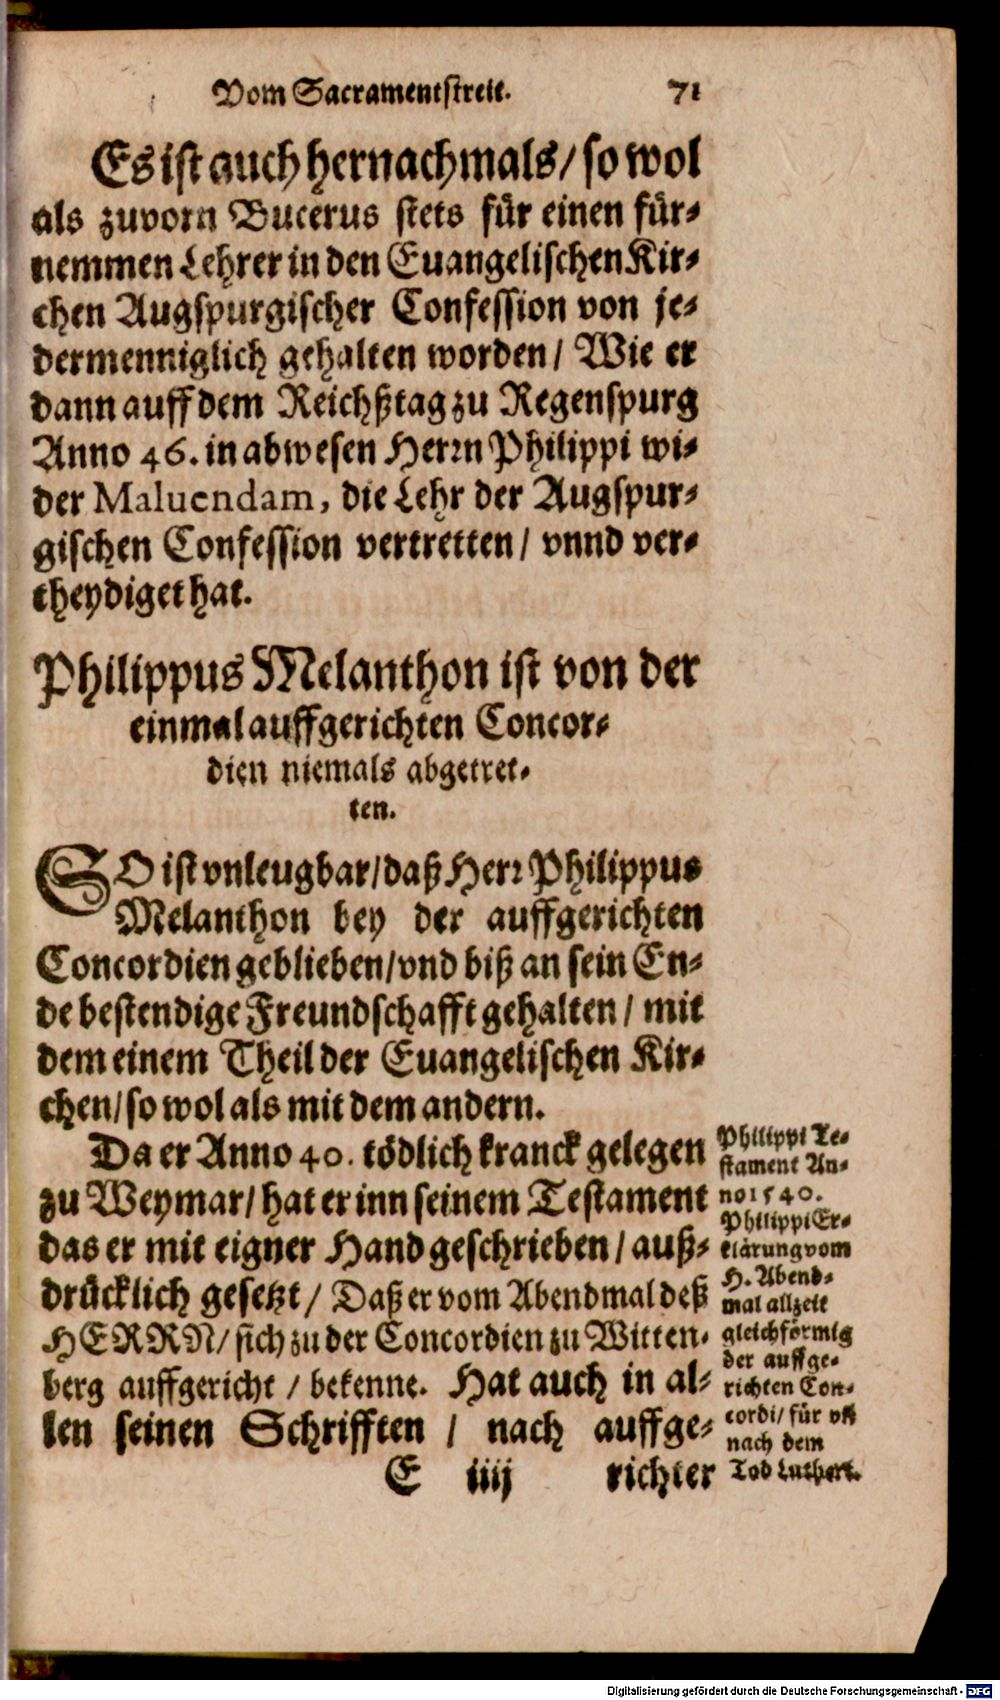 Vom Sacramentstreit. 71
Es ist auch hernachmals/ so wol
als zuvorn Bucerus stets für einen für-
nemmen Lehrer in den Euangelischen Kir-
chen Augspurgischer Confession von je-
dermenniglich gehalten worden/ Wie er
dann auff dem Reichßtag zu Regenspurg
Anno 46. in abwesen Herrn Philippi wi-
der Maluendam, die Lehr der Augspur-
gischen Confession vertretten/ vnnd ver-
theydiget hat.
Philippus Melanthon ist von der
einmal auffgerichten Concor-
dien niemals abgetret-
ten.
SO ist vnleugbar/ daß Herr Philippus
Melanthon bey der auffgerichten
Concordien geblieben/ vnd biß an sein En-
de bestendige Freundschafft gehalten/ mit
dem einem Theil der Euangelischen Kir-
chen/ so wol als mit dem andern.
Da er Anno 40. tödlich kranck gelegen
zu Weymar/ hat er inn seinem Testament
das er mit eigner Hand geschrieben/ auß-
drücklich gesetzt/ Daß er vom Abendmal deß
HERRN/ sich zu der Concordien zu Witten-
berg auffgericht/ bekenne. Hat auch in al-
len seinen Schrifften/ nach auffge-
E iiij richter
Philippi Te-
stament An-
no 1540.
Philippi Er-
klärung vom
H. Abend-
mal allzeit
gleichförmig
der auffge-
richten Con-
cordi/ für vñ
nach dem
Tod Lutheri.
Digitalisierung gefördert durch die Deutsche Forschungsgemeinschaft - DFG